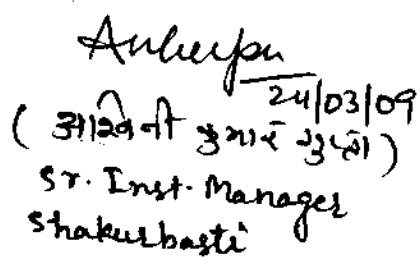 24/03/09
( आश्विनी कुमार गुप्ता )
Sr. Inst. Manager
Shakurbasti